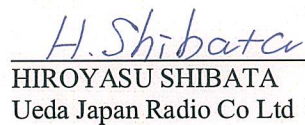 H. Shibata
HIROYASU SHIBATA
Ueda Japan Radio Co Ltd